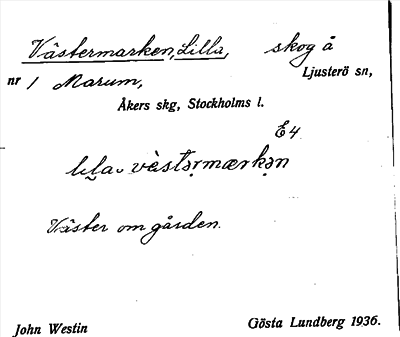 Västermarken, Lilla, skog å
Ljusterö sn,
nr 1 Marum,
Åkers skg, Stockholms l.
E4
lıla. vèstərmærkən
Väster om gården.
John Westin Gösta Lundberg 1936.